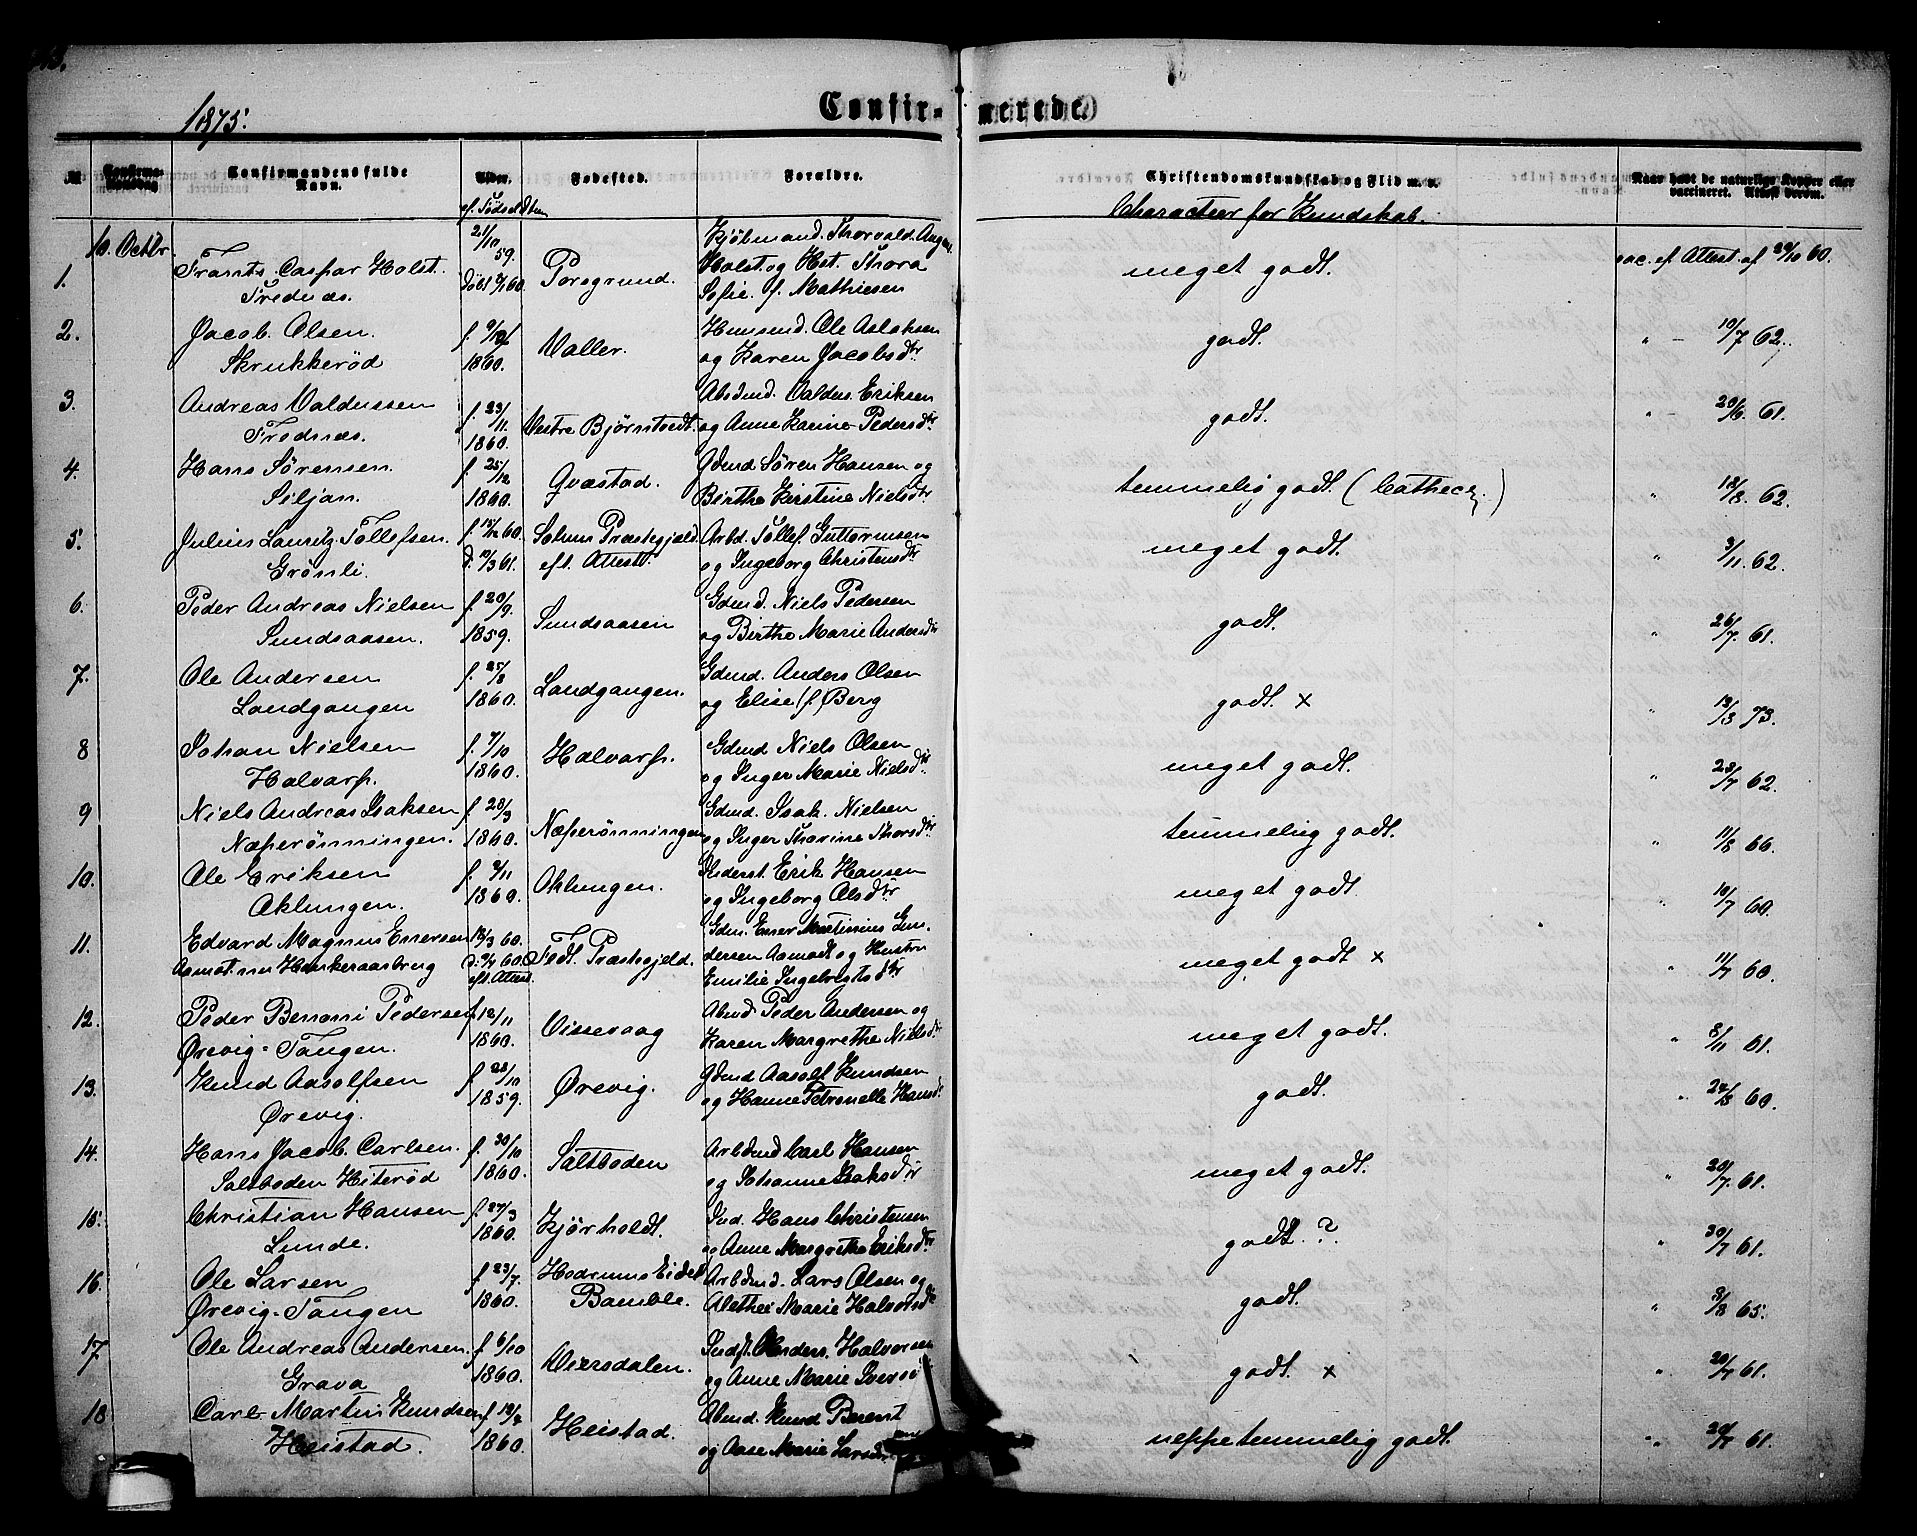 1875.
Confir-
merede
№
Confirma-
tionsdag
Confirmandens fulde
Navn.
Alder.
Fødested.
Forældre.
Christendomskundskab og Flid m. v.
Naar havt de naturlige Kopper eller
vaccineret. Attest derom.
Characteer for Kundskab.
10 Octbr.
1.
Frants Caspar Holst.
Frednes.
21/10 59.
Porsgrund.
Kjöbmand. Thorvald. August
Holst. og Hst. Thora
Sofie. f. Mathiesen
meget godt.
vac. ef. Attest. af 29/10 60.
2.
Jacob. Olsen.
Skrukkerød
1860.
Valler.
Huusmd. Ole Aslaksen
og Karen Jacobsdtr
godt.
" — 10/7 62.
3.
Andreas Valdussen
Frednes.
f. 23/11.
1860.
Vestre Bjørntvedt.
Valdus. Eriksen
og Anne Karine Pedersdtr
godt.
" — 20/6. 61.
4.
Hans Sørensen
Siljan.
f. 25/12
1860.
Gvæstad.
Gdmd Søren Hansen og
Birthe Kirstine Nielsdtr
temmelig godt. (Cathec.)
" 18/8. 62.
5.
Julius Lauritz Tollefsen.
Grönli.
f. 15/12 60.
d. 10/3 61.
Solum Præstegjeld
eft. Attest.
Arbd. Tollef. Guttormsen
og Ingeborg Christensdtr
meget godt.
" 3/11. 62.
6.
Peder Andreas Nielsen
Sundsaasen.
f. 20/9.
1859.
Sundsaasen
Gdmd. Niels Pedersen
og Birthe Marie Andersdtr
godt.
" 26/7. 61.
7.
Ole Andersen
Landgangen
f. 25/8
1860.
Landgangen.
Gdmd. Anders Olsen
og Elise (f.) Berg
godt. x
" 13/3 73.
8
Johan Nielsen
Halvarp.
f. 7/10
1860.
Halvarp.
Gdmd Niels Olsen
og Inger Marie Nielsdtr.
meget godt.
" 23/7 62.
9
Niels Andreas Isaksen
Næperönningen.
f. 28/3
1860.
Næperönningen
Gdmd. Isak. Nielsen
og Inger Thorine Thorsdtr
temmelig godt.
" 11/8 66.
10.
Ole Eriksen
Oklungen.
f. 2/11
1860.
Oklungen.
Inderst Erik Hansen
og Ingeborg Olsdtr
meget godt
" 10/7 60.
11.
Edvard Magnus Enersen
13/3 60.
eft. Attest.
Præstegjeld.
Ener Martinius Gun-
dersen Aamodt og Hustru
Emilie Ingebregtsdtr
meget godt x
" 11/7 60.
12.
Peder Benoni Pedersen
Ørevig-Tangen.
f. 12/11
1860.
Vissevaag
Peder Andersen og
Karen Margrethe Nielsdtr
meget godt.
" 8/11 61.
13.
Knud Aasolfsen
Ørevig.
f. 28/10
1859.
Ørevig.
Gdmd Aasolf Knudsen
og Hanne Petronelle Hansd.
godt.
" 24/8 60.
14.
Hans Jacob. Carlsen.
Saltboden Hiterød
f. 30/10
1860.
Saltboden
Arbdmd Carl Hansen
og Johanne Isaksdtr
meget godt.
" 20/7. 61.
15.
Christian Hansen
Lunde.
f. 27/3
1860.
Kjörholdt.
Hans Christensen
og Anne Margrethe Eriksdtr
godt. ?
" 30/7 61.
16.
Ole Larsen
Ørevig-Tangen
f. 23/7.
1860.
Bamble.
Arbdmd. Lars Olsen og
Alethee Marie Halvorsdtr
godt.
" 8/8 65.
17.
Ole Andreas Andersen.
Grava
f. 6/10
1860.
Versdalen.
Anders. Halvorsen
og Anne Marie
godt. x
" 20/7 61.
18
Carl Martin Knudsen
Heistad.
1860.
Heistad.
Knud Berent
og Aase Marie Larsd
neppe temmelig godt.
" 20/7 61.